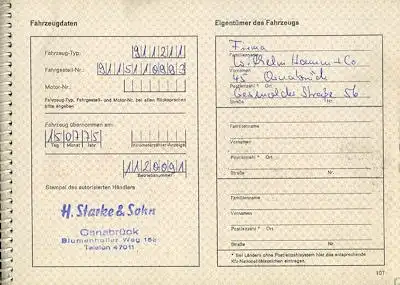 Fahrzeugdaten
Fahrzeug-Typ: 911211
Fahrgestell-Nr.: 9115110993
Motor-Nr.:
Fahrzeug-Typ, Fahrgestell- und Motor-Nr. bei allen Rücksprachen
bitte angeben.
Fahrzeug übernommen am:
15 07 75
Tag Monat Jahr Kilometerzähler-Anzeige
112091
Betriebsnummer
Stempel des autorisierten Händlers
H. Starke & Sohn
Osnabrück
Blumenhaller Weg 152
Telefon 47011
Eigentümer des Fahrzeugs
Firma
Familienname
Wilhelm Hamm + Co.
Vornamen
45 Osnabrück
Postleitzahl * Ort
Straße 56
Straße
Familienname
Vornamen
Postleitzahl * Ort
Straße Nr.
Familienname
Vornamen
Postleitzahl * Ort
Straße Nr.
* Bei Ländern ohne Postleitzahlsystem hier das entsprechende
Kfz-Nationalitätszeichen eintragen.
107